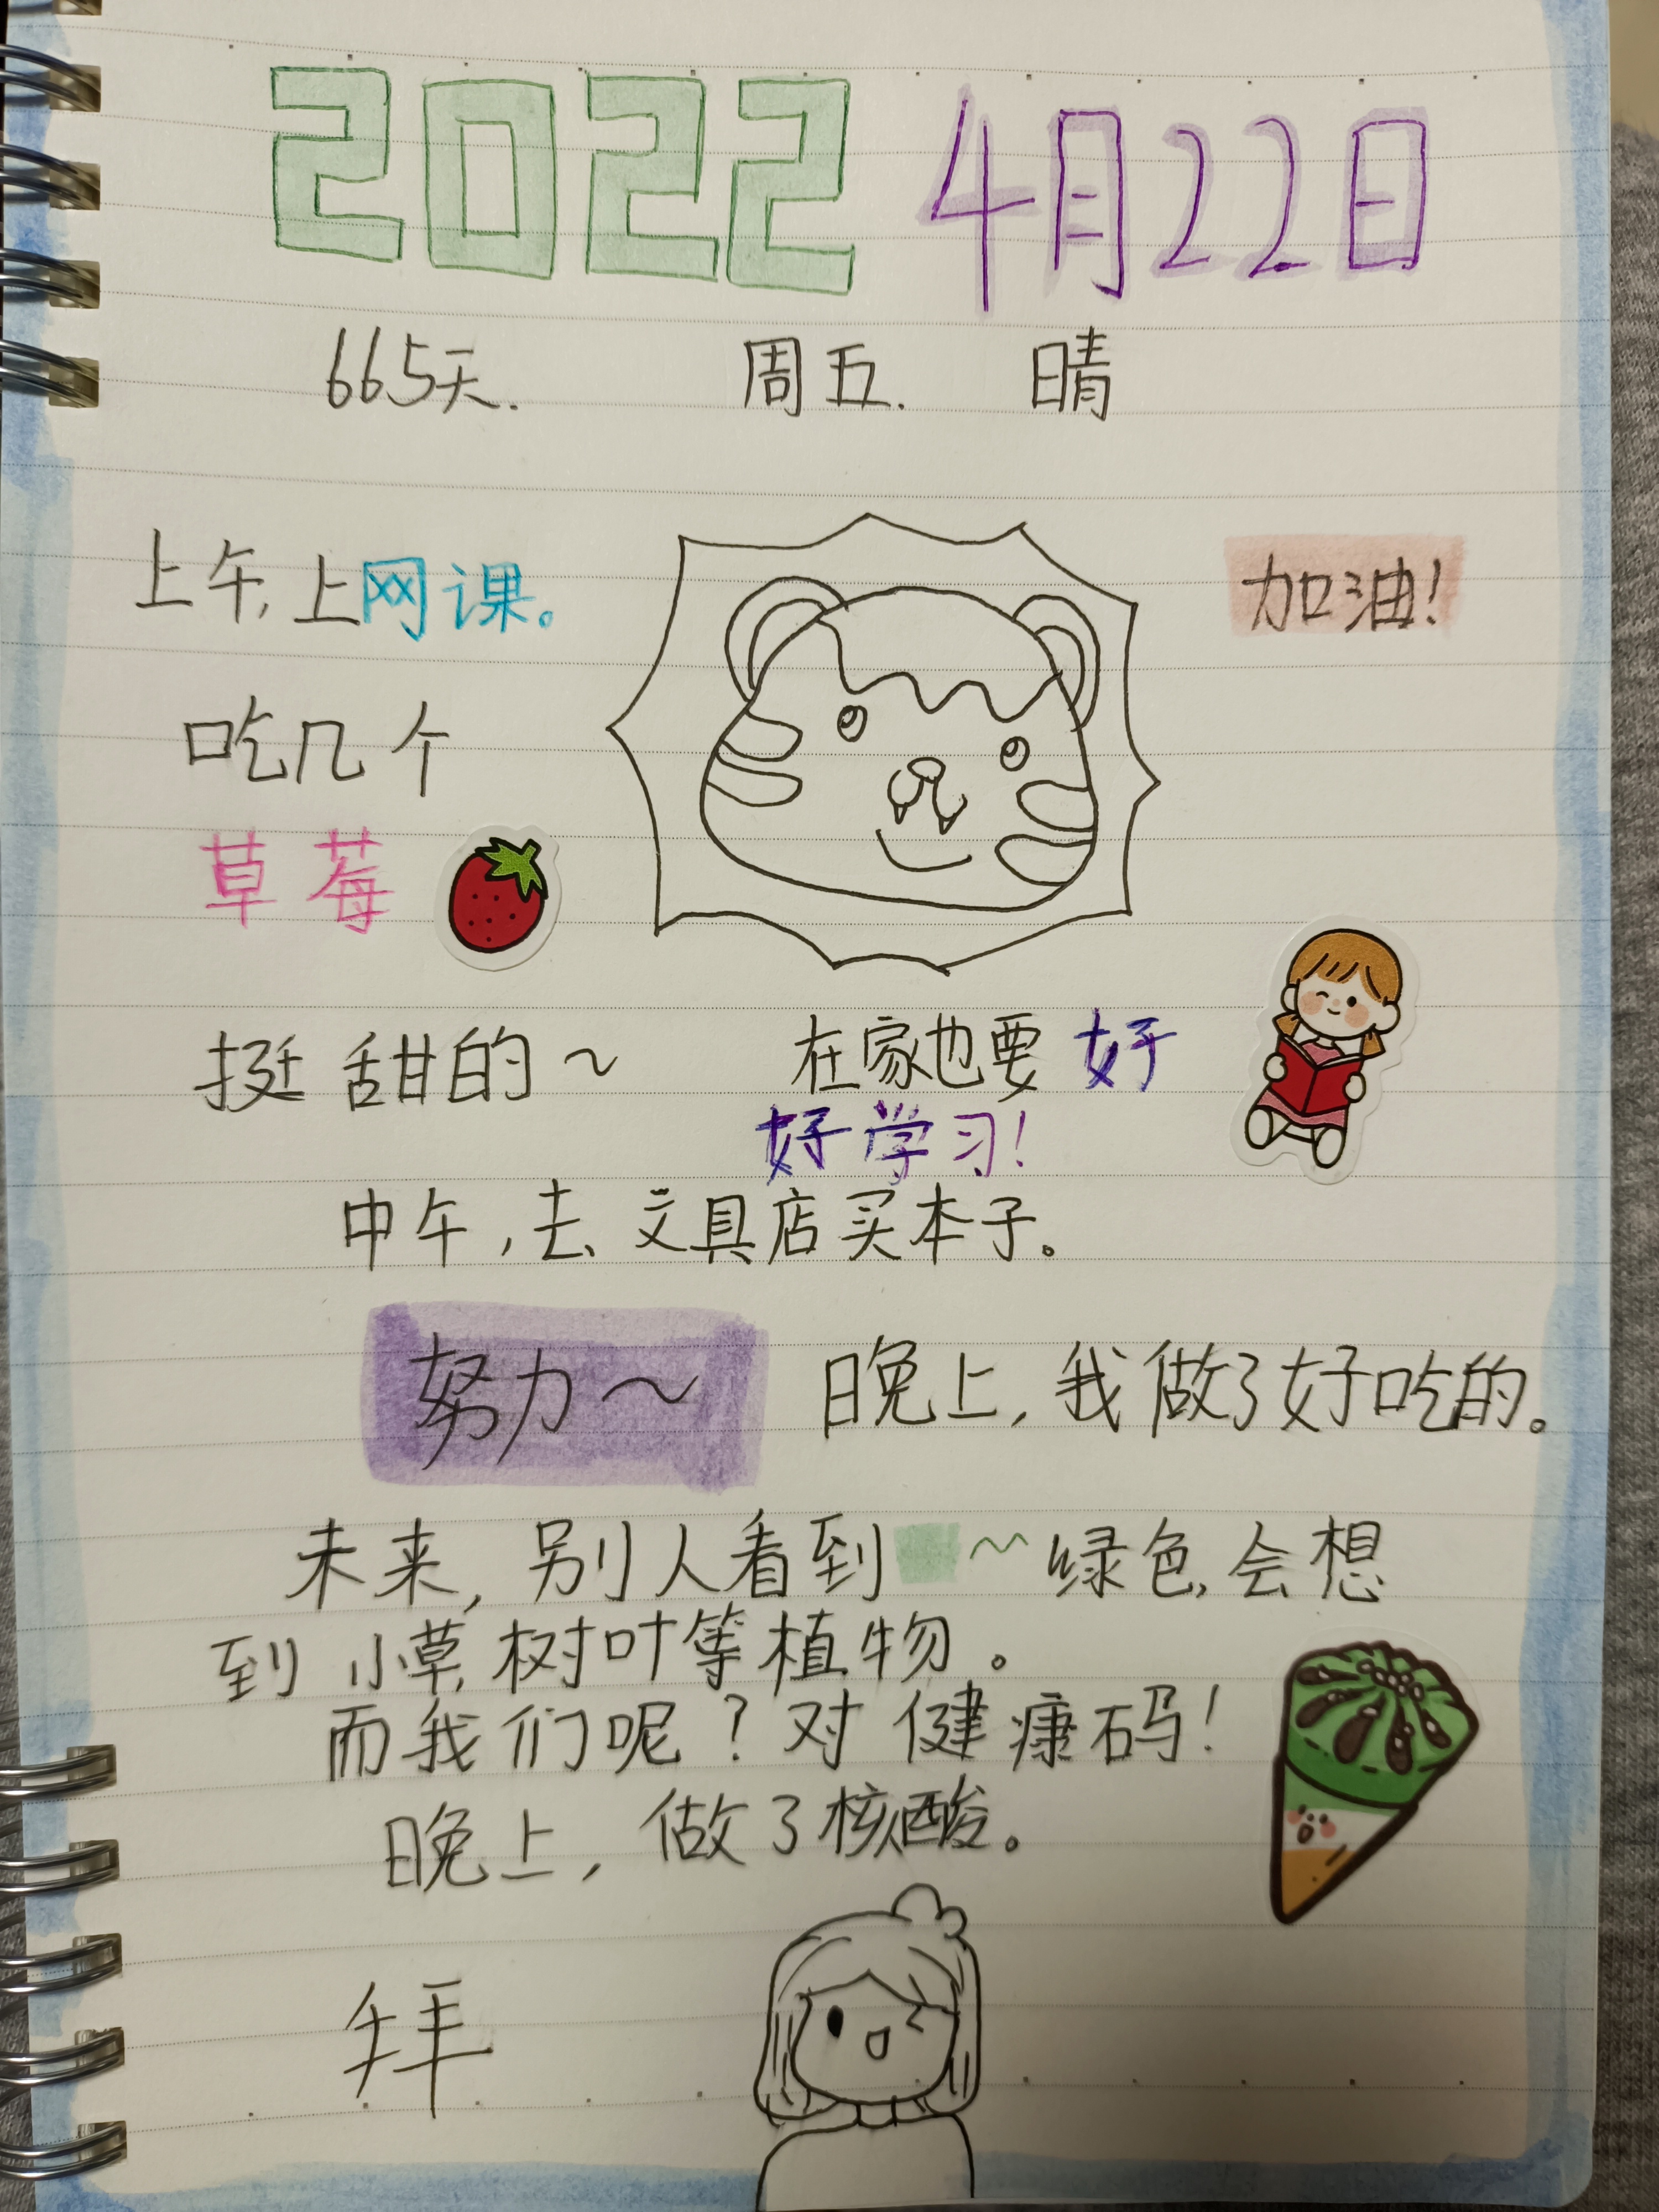 2022 4月22日
665天. 周五. 晴
上午,上网课。
加油!
吃几个
草莓
挺甜的~
在家也要好
好学习!
中午,去文具店买本子。
努力~
晚上,我做了好吃的。
未来,别人看到~绿色,会想
到小草,树叶等植物。
而我们呢?对健康码!
晚上,做了核酸。
拜